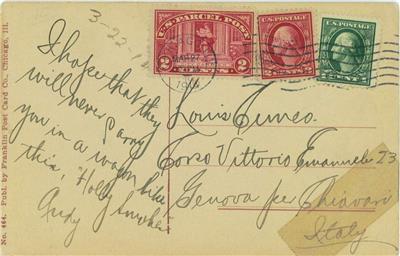 3-22-1
U.S. PARCEL POST
2 CENTS 2
U.S. POSTAGE
2 CENTS 2
U.S. POSTAGE
CENT
I hope that they
will never carry
you in a wagon like
this, "Holly Smokes"
Andy
Louis Cuneo.
Corso Vittorio Emanuele 23
Genova per Chiavari
Italy
No. 464. Publ. by Franklin Post Card Co., Chicago, Ill.